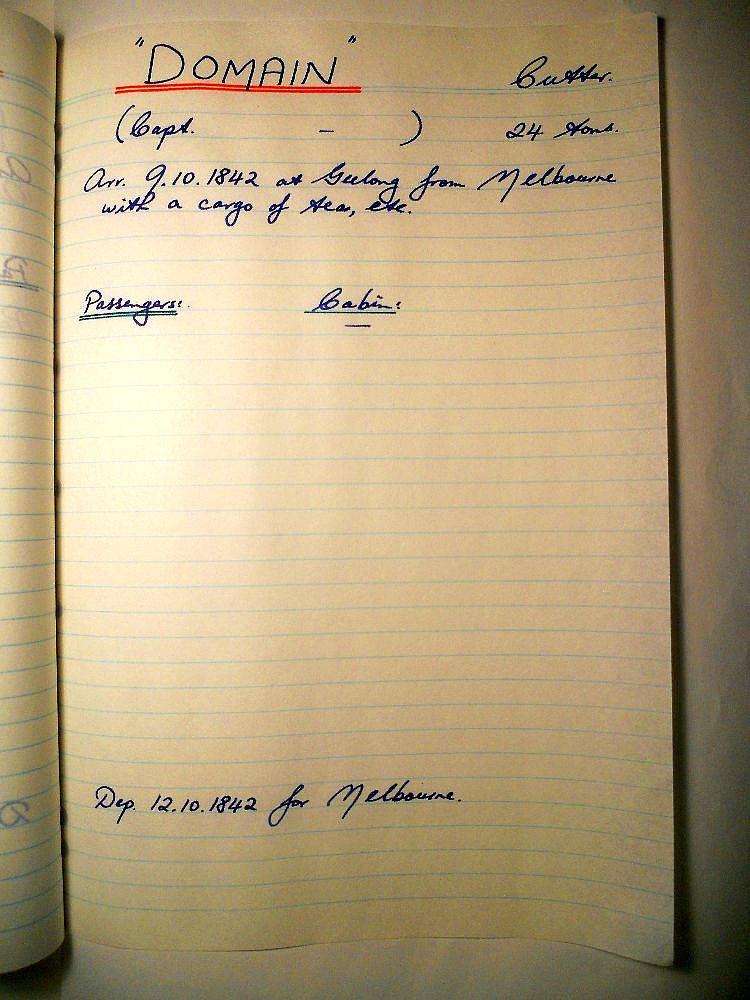 "DOMAIN" Cutter.
(Capt. - ) 24 tons.
Arr. 9.10.1842 at Geelong from Melbourne
with a cargo of tea, etc.
Passengers: Cabin:
—
Dep. 12.10.1842 for Melbourne.